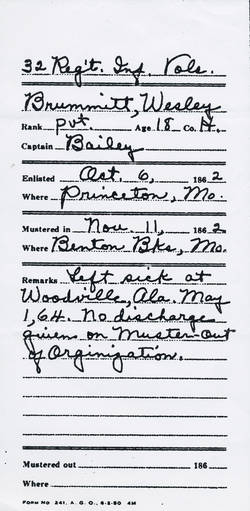 32 Reg't. Inf. Vols.
Brummitt, Wesley
Rank pvt. Age 18 Co. H.
Captain Bailey
Enlisted Oct. 6, 1862
Where Princeton, Mo.
Mustered in Nov. 11, 1862
Where Benton Bks, Mo.
Remarks Left sick at
Woodville, Ala. May
1, 64. No discharge
givens on Muster-Out
of Orginization.
Mustered out 186
Where
Form No 241, A. G. O., 6-2-50 4M